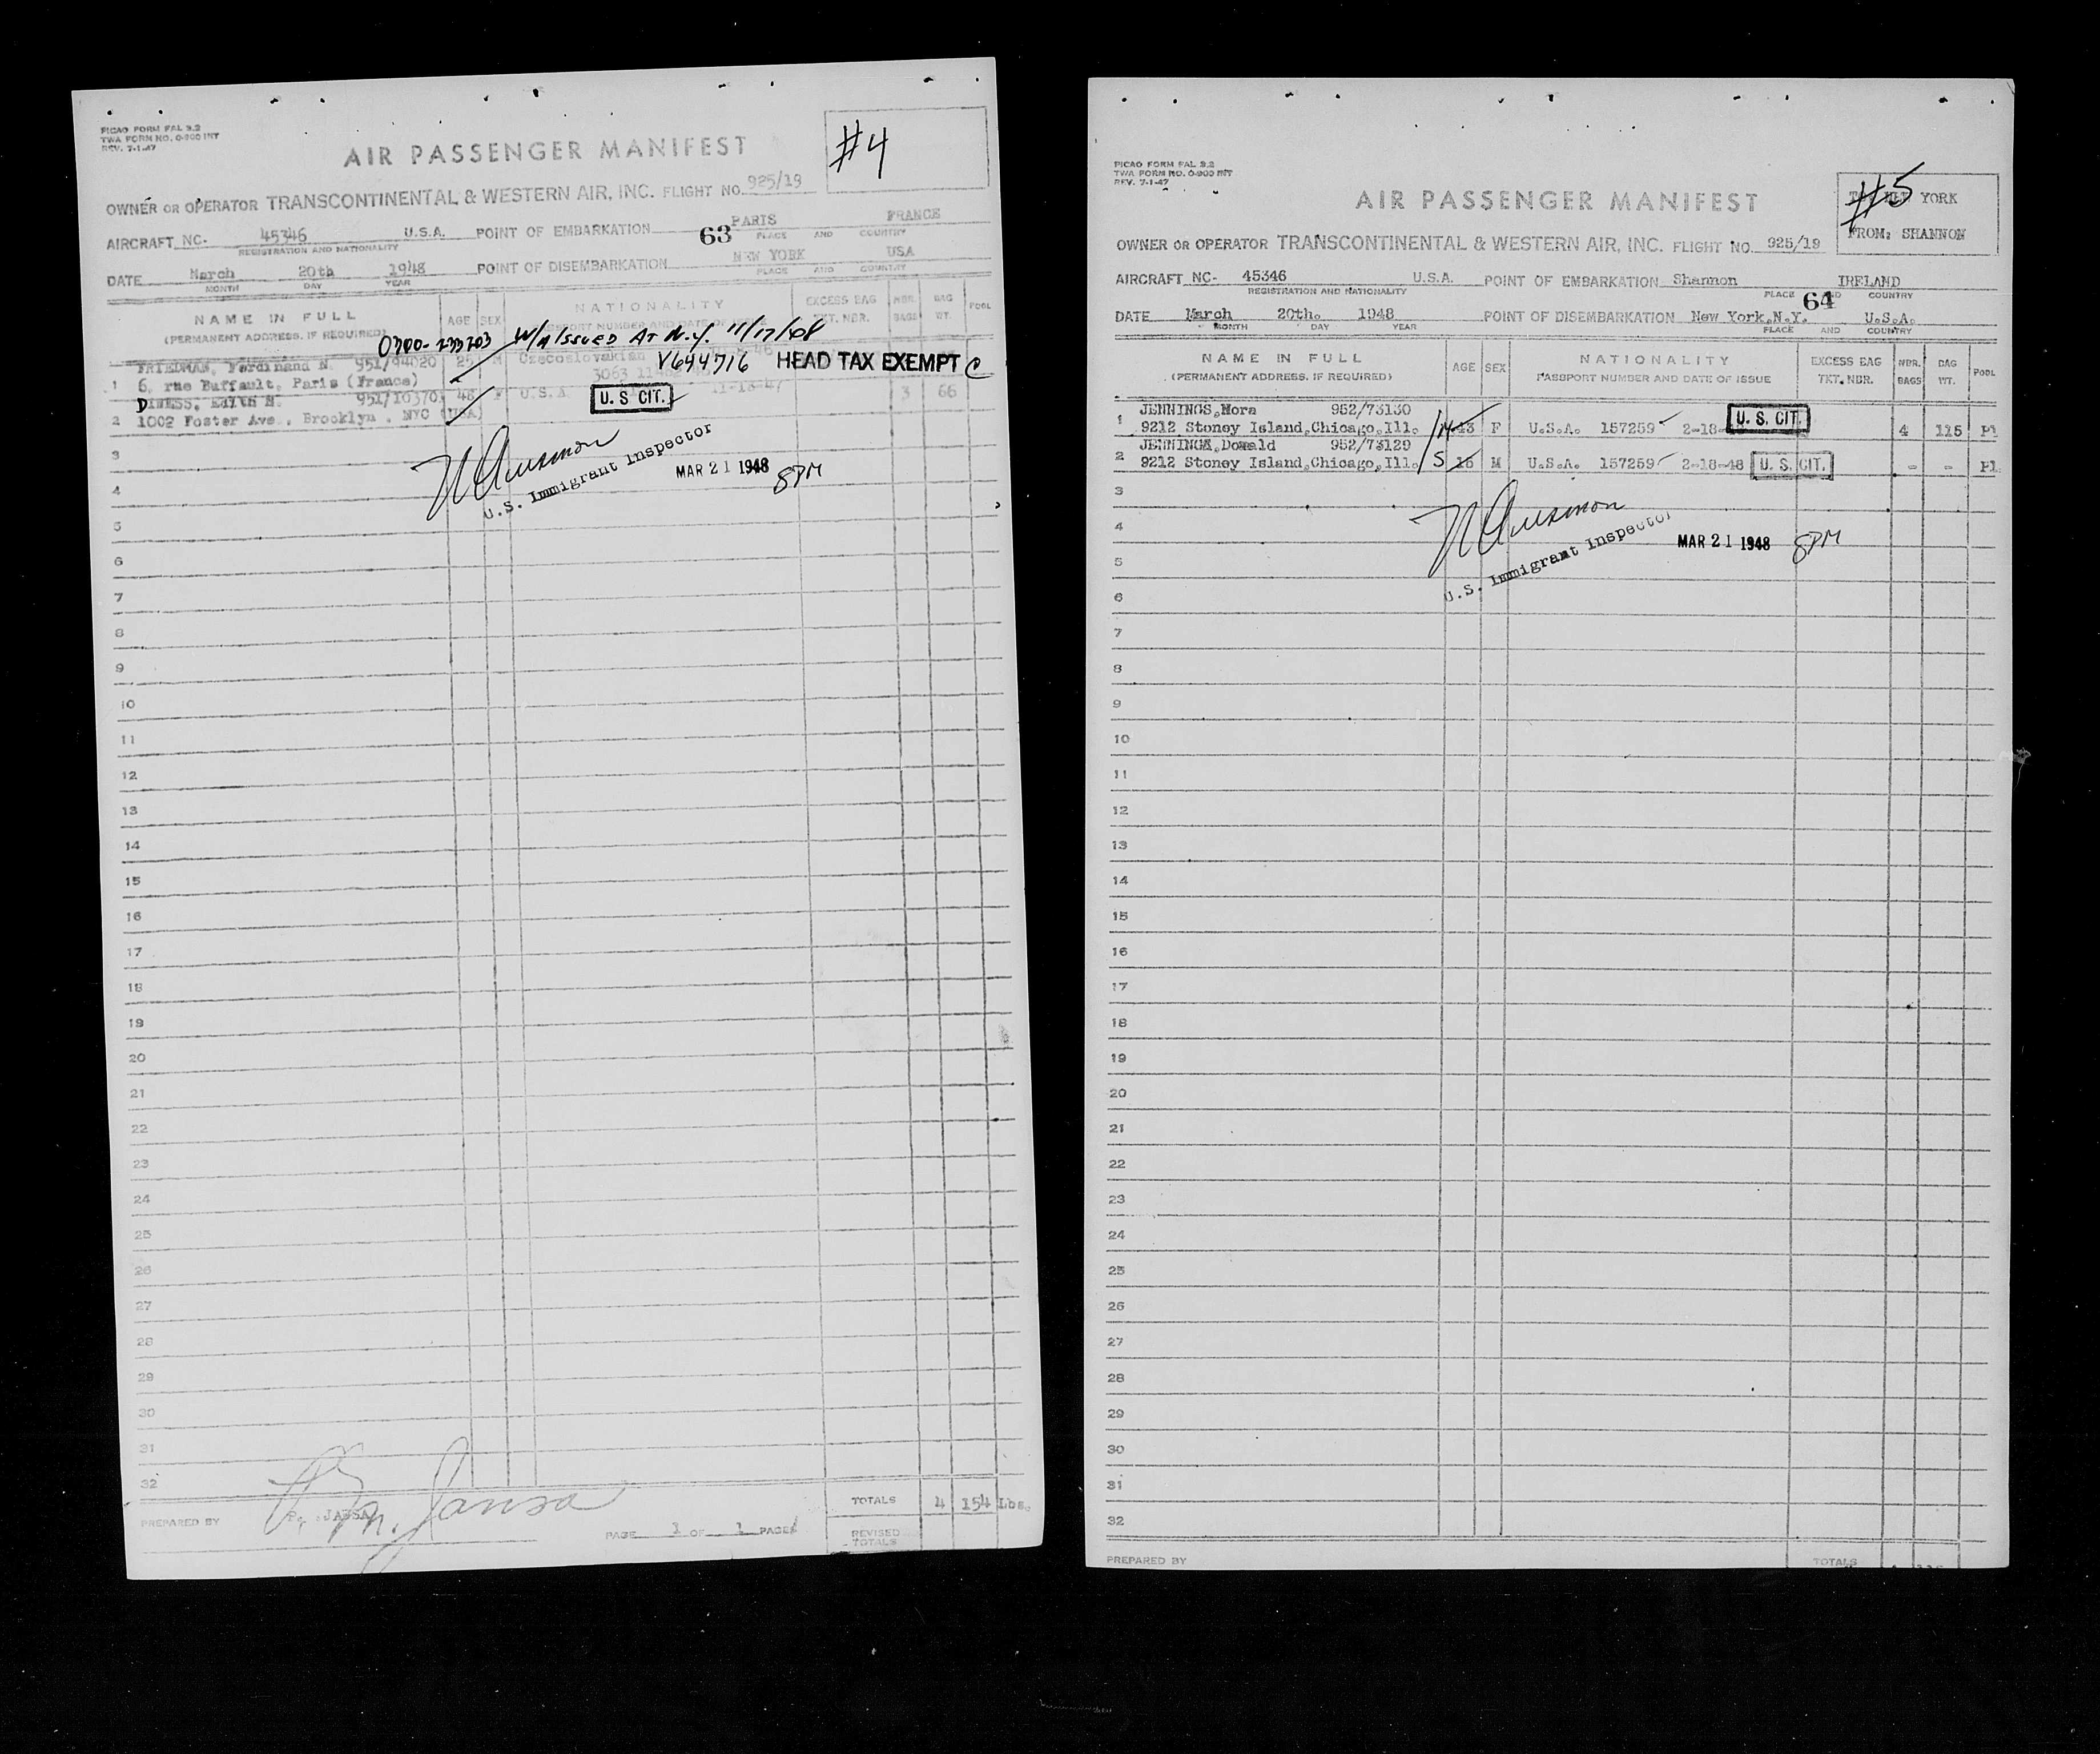 PICAO FORM FAL 3.2
TWA FORM NO. 0-900 INT
REV. 7-1-47
#4
AIR PASSENGER MANIFEST
OWNER OR OPERATOR TRANSCONTINENTAL & WESTERN AIR, INC. FLIGHT NO. 925/19
AIRCRAFT NC- 45346 U.S.A. POINT OF EMBARKATION PARIS FRANCE
REGISTRATION AND NATIONALITY 63 PLACE AND COUNTRY
DATE March 20th 1948 POINT OF DISEMBARKATION NEW YORK USA
MONTH DAY YEAR PLACE AND COUNTRY
NAME IN FULL AGE SEX NATIONALITY EXCESS BAG NBR. BAG POOL
(PERMANENT ADDRESS. IF REQUIRED) PASSPORT NUMBER AND DATE OF ISSUE TKT. NBR. BAGS WT.
0700- W/A ISSUED AT N.Y. 11/17/
FRIEDMAN, Ferdinand N. 951/94020 25 M Czecoslovakian V644716 HEAD TAX EXEMPT C
1 6, rue Buffault, Paris (France) 3063
DINESS, Edith H. 951/10370 48 F U.S.A. U. S CIT. 11-18-47 3 66
2 1002 Foster Ave., Brooklyn, NYC (USA)
3
U.S. Immigrant Inspector
MAR 21 1948 8PM
4
5
6
7
8
9
10
11
12
13
14
15
16
17
18
19
20
21
22
23
24
25
26
27
28
29
30
31
32
TOTALS 4 154 Lbs.
PREPARED BY P. JANSA
P. M. Jansa
PAGE 1 OF 1 PAGES
REVISED
TOTALS
PICAO FORM FAL 3.2
TWA FORM NO. 0-900 INT
REV. 7-1-47
#5
TO: NEW YORK
FROM: SHANNON
AIR PASSENGER MANIFEST
OWNER OR OPERATOR TRANSCONTINENTAL & WESTERN AIR, INC. FLIGHT NO. 925/19
AIRCRAFT NC- 45346 U.S.A. POINT OF EMBARKATION Shannon IRELAND
REGISTRATION AND NATIONALITY PLACE 64 AND COUNTRY
DATE March 20th. 1948 POINT OF DISEMBARKATION New York,N.Y. U.S.A.
MONTH DAY YEAR PLACE AND COUNTRY
NAME IN FULL AGE SEX NATIONALITY EXCESS BAG NBR. BAG POOL
(PERMANENT ADDRESS. IF REQUIRED) PASSPORT NUMBER AND DATE OF ISSUE TKT. NBR. BAGS WT.
JENNINGS,Nora 952/73130
1 9212 Stoney Island,Chicago,Ill. 14 43 F U.S.A. 157259 2-18- U. S. CIT. 4 115 Pl
JENNINGS,Donald 952/73129
2 9212 Stoney Island,Chicago,Ill. 5 16 M U.S.A. 157259 2-18-48 U. S. CIT. - - Pl
3
4
U.S. Immigrant Inspector
MAR 21 1948 8PM
5
6
7
8
9
10
11
12
13
14
15
16
17
18
19
20
21
22
23
24
25
26
27
28
29
30
31
32
PREPARED BY TOTALS